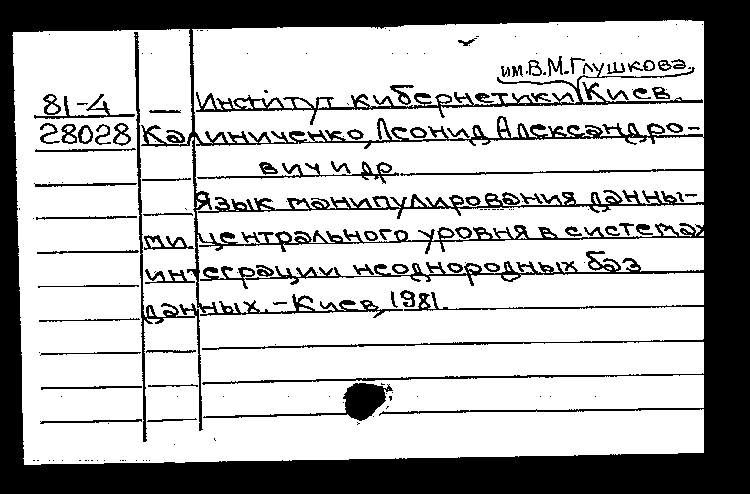 им. В.М. Глушкова,
81-4 — Институт кибернетики Киев.
28028 Калиниченко, Леонид Александро-
вич и др.
Язык манипулирования данны-
ми центрального уровня в системах
интеграции неоднородных баз
данных. - Киев, 1981.